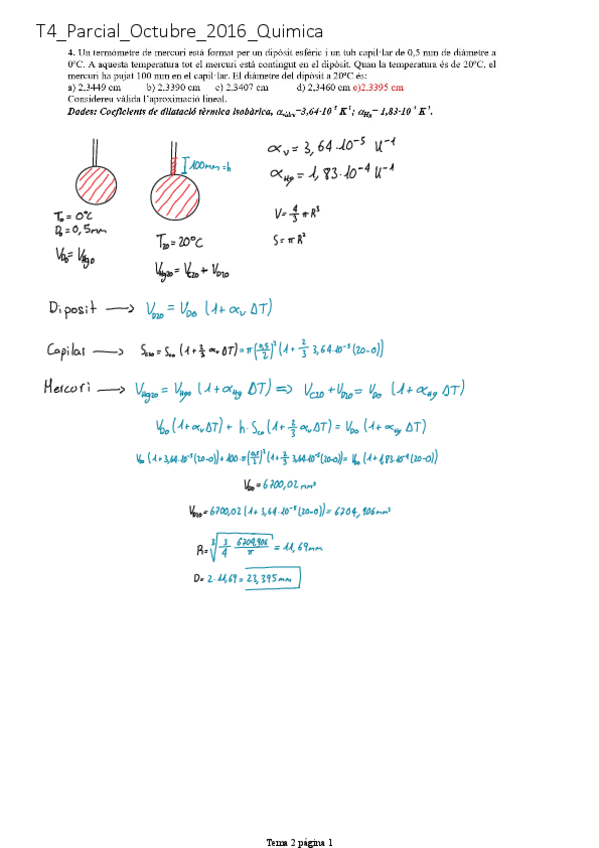 T4_Parcial_Octubre_2016_Quimica
4. Un termòmetre de mercuri està format per un dipòsit esfèric i un tub capil·lar de 0,5 mm de diàmetre a
0ºC. A aquesta temperatura tot el mercuri està contingut en el dipòsit. Quan la temperatura és de 20ºC, el
mercuri ha pujat 100 mm en el capil·lar. El diàmetre del dipòsit a 20ºC és:
a) 2.3449 cm b) 2.3390 cm c) 2.3407 cm d) 2.3460 cm e)2.3395 cm
Considereu vàlida l'aproximació lineal.
Dades: Coeficients de dilatació tèrmica isobàrica, α_vidre=3,64·10⁻⁵ K⁻¹; α_Hg= 1,83·10⁻⁴ K⁻¹.
100mm=h
α_V = 3,64·10⁻⁵ K⁻¹
α_Hg = 1,83·10⁻⁴ K⁻¹
T₀ = 0ºC
D₀ = 0,5mm
V_D0 = V_Hg0
T₂₀ = 20ºC
V_Hg20 = V_C20 + V_D20
V = 4/3 π R³
S = π R²
Diposit → V_D20 = V_D0 (1 + α_V ΔT)
Capilar → S_C20 = S_C0 (1 + 2/3 α_V ΔT) = π (0,5/2)² (1 + 2/3 3,64·10⁻⁵ (20-0))
Mercuri → V_Hg20 = V_Hg0 (1 + α_Hg ΔT) ⇒ V_C20 + V_D20 = V_D0 (1 + α_Hg ΔT)
V_D0 (1 + α_V ΔT) + h · S_C0 (1 + 2/3 α_V ΔT) = V_D0 (1 + α_Hg ΔT)
V_D0 (1 + 3,64·10⁻⁵ (20-0)) + 100 · π (0,5/2)² (1 + 2/3 3,64·10⁻⁵ (20-0)) = V_D0 (1 + 1,83·10⁻⁴ (20-0))
V_D0 = 6700,02 mm³
V_D20 = 6700,02 (1 + 3,64·10⁻⁵ (20-0)) = 6704,906 mm³
R = ∛(3/4 6704,906/π) = 11,69 mm
D = 2 · 11,69 = 23,395 mm
Tema 2 página 1